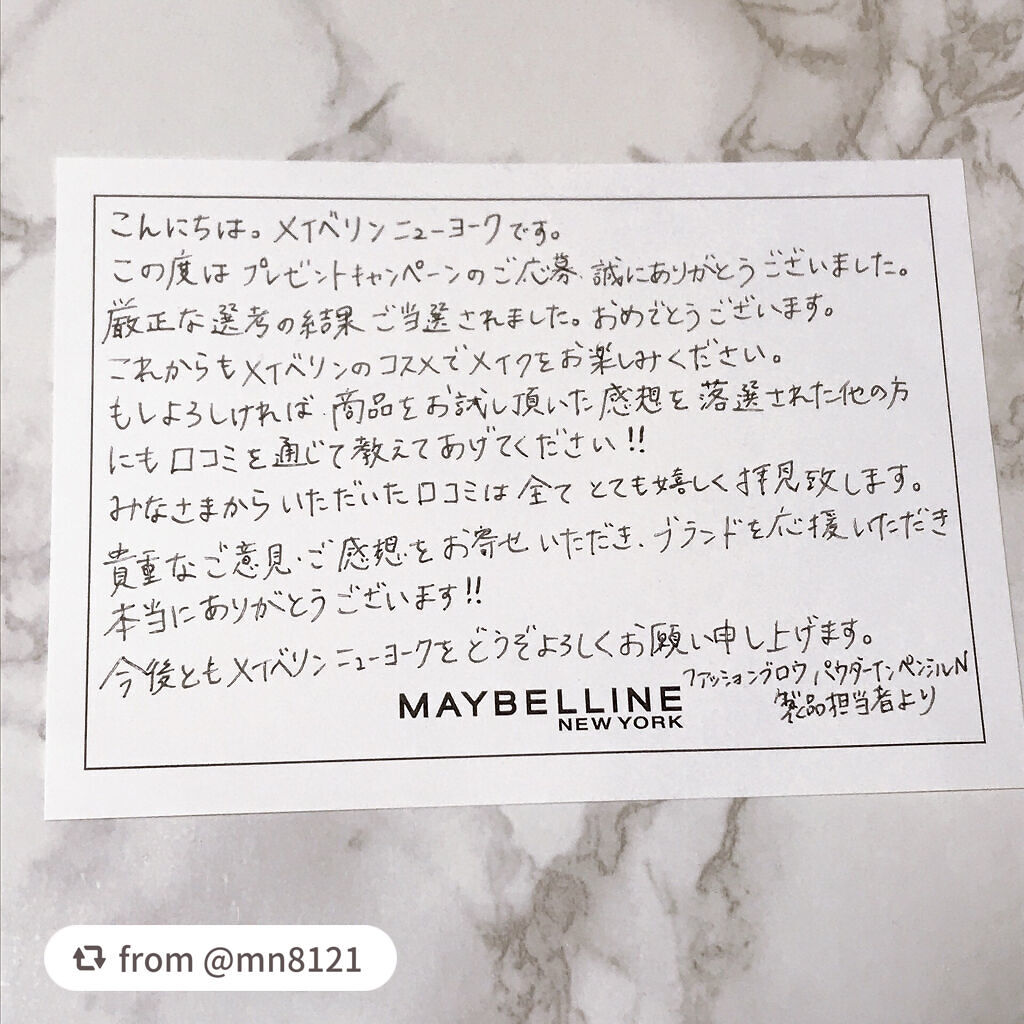 こんにちは。メイベリン ニューヨークです。
この度は プレゼントキャンペーンのご応募、誠にありがとうございました。
厳正な選考の結果 ご当選されました。おめでとうございます。
これからもメイベリンのコスメでメイクをお楽しみください。
もしよろしければ、商品をお試し頂いた感想を落選された他の方
にも口コミを通じて教えてあげてください!!
みなさまからいただいた口コミは全てとても嬉しく拝見致します。
貴重なご意見・ご感想をお寄せいただき、ブランドを応援いただき
本当にありがとうございます!!
今後ともメイベリン ニューヨークをどうぞよろしくお願い申し上げます。
ファッションブロウ パウダーインペンシルN
製品担当者より
MAYBELLINE
NEW YORK
from @mn8121